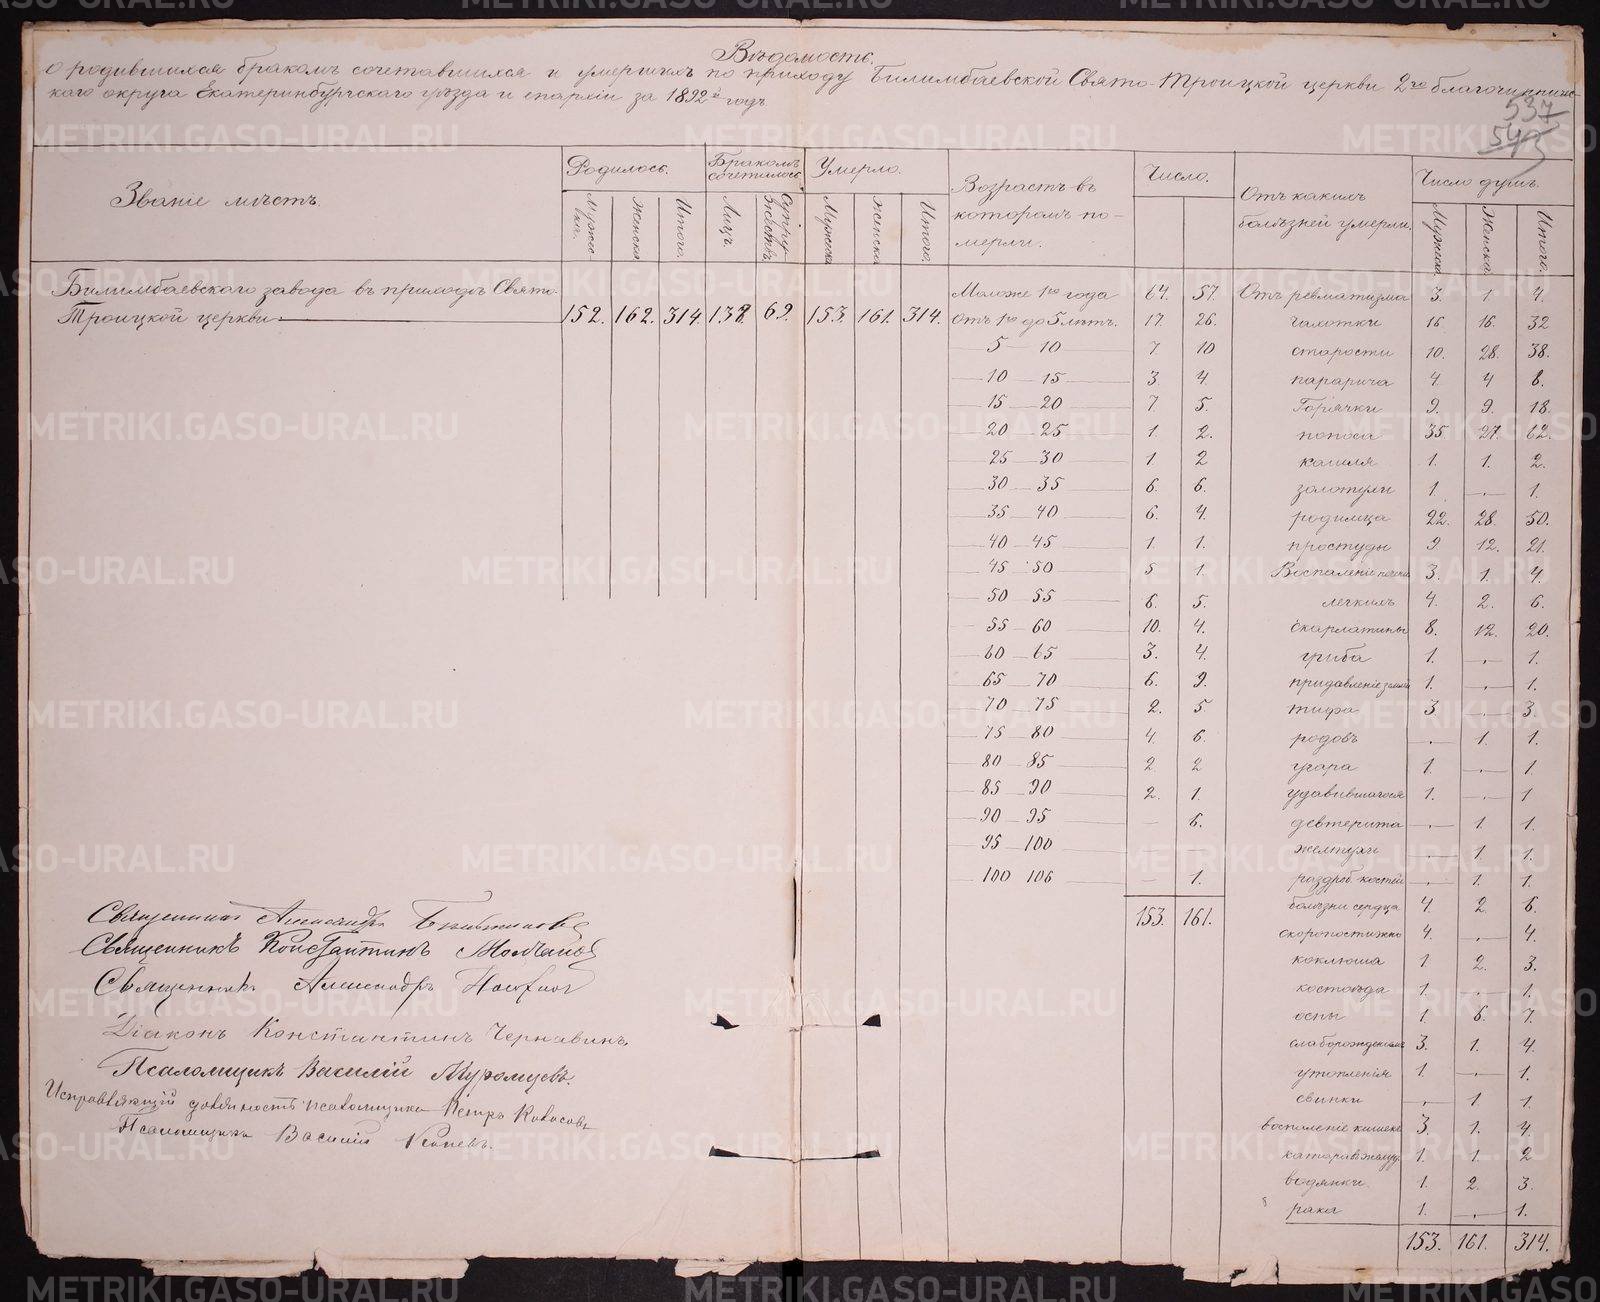 Вѣдомость.
о родившихся бракомъ сочетавшихся и умершихъ по приходу Билимбаевской Свято-Троицкой церкви 2го благочинниче-
каго округа Екатеринбургскаго уѣзда и епархіи за 1892й годъ.
537
543
Званіе мѣстъ.
Родилось.
Бракомъ сочеталось.
Умерло.
Возрастъ въ которомъ по-мерли.
Число.
Отъ какихъ болѣзней умерли.
Число душъ.
Женска
Итого.
Лицъ.
Супружествъ.
Мужска
Женска
Итого.
Мужска
Женска.
Итого.
Билимбаевскаго завода въ приходѣ Свято-
Троицкой церкви 152. 162. 314. 138. 69. 153. 161. 314.
Моложе 1го года 64. 57.
Отъ 1го до 5 лѣтъ. 17. 26.
5 — 10 7 10
10 — 15 3. 4.
15 — 20 7. 5.
20 — 25 1. 2.
25 — 30 1. 2
30 — 35 6. 6.
35 — 40 6. 4.
40 — 45 1. 1.
45 50 5 1.
50 55 6. 5.
55 — 60 10. 4.
60 — 65 3. 4.
65 — 70 6. 9.
70 — 75 2. 5.
75 — 80 4. 6.
80 — 85 2 2
85 — 90 2. 1.
90 — 95 — 6.
95 — 100
100 106 — 1.
153. 161.
Отъ ревматизма 3. 1 4.
чахотки 16 16. 32
старости 10. 28. 38.
паралича 4. 4 8.
Горячки 9. 9. 18.
поноса 35 27. 62.
кашля 1. 1. 2.
золотухи 1 — 1.
родимца 22. 28. 50.
простуды 9 12. 21.
Воспаленіе печени 3. 1. 4.
легкихъ 4. 2. 6.
Скарлатины 8. 12. 20.
гриба 1. — 1.
придавленіе землей 1. — 1.
тифа 3 — 3.
родовъ — 1. 1.
угара 1. — 1.
удавившагося 1. — 1
девтерита — 1. 1.
желтухи — 1. 1.
раздроб. костей — 1. 1.
болѣзни сердца 4. 2. 6.
скоропостижно 4. — 4.
коклюша 1. 2. 3.
костоѣда 1. — 1.
оспы 1. 6. 7.
слаборожденныхъ 3. 1. 4.
утопленія 1. — 1.
свинки — 1. 1.
воспаленіе кишекъ 3. 1. 4.
катаръ желуд. 1. 1. 2
водянки 1. 2. 3.
рака 1. — 1.
153. 161. 314.
Священникъ Александръ
Священникъ Константинъ Молчановъ
Священникъ Александръ
Діаконъ Константинъ Чернавинъ.
Псаломщикъ Василій Муромцевъ.
Исправляющій должность псаломщика Петръ
Псаломщикъ Василій
METRIKI.GASO-URAL.RU